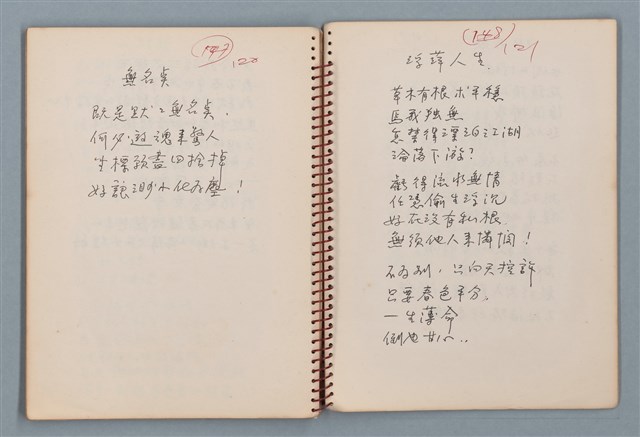 147
120
無名英
既是默默無名英，
何必遊魂来驚人
生樣 盡 掉
好讓 水化為塵！
148
121
浮萍人生
草木有根求平穩
爲我獨無
怎禁得漂泊江湖
淪落下游？
虧得流水無情
任憑偷生浮沉
好在沒有私根
無須他人来憐憫！
不为别，只向天控訴
只要春色平分，
一生薄命
倒也甘心..